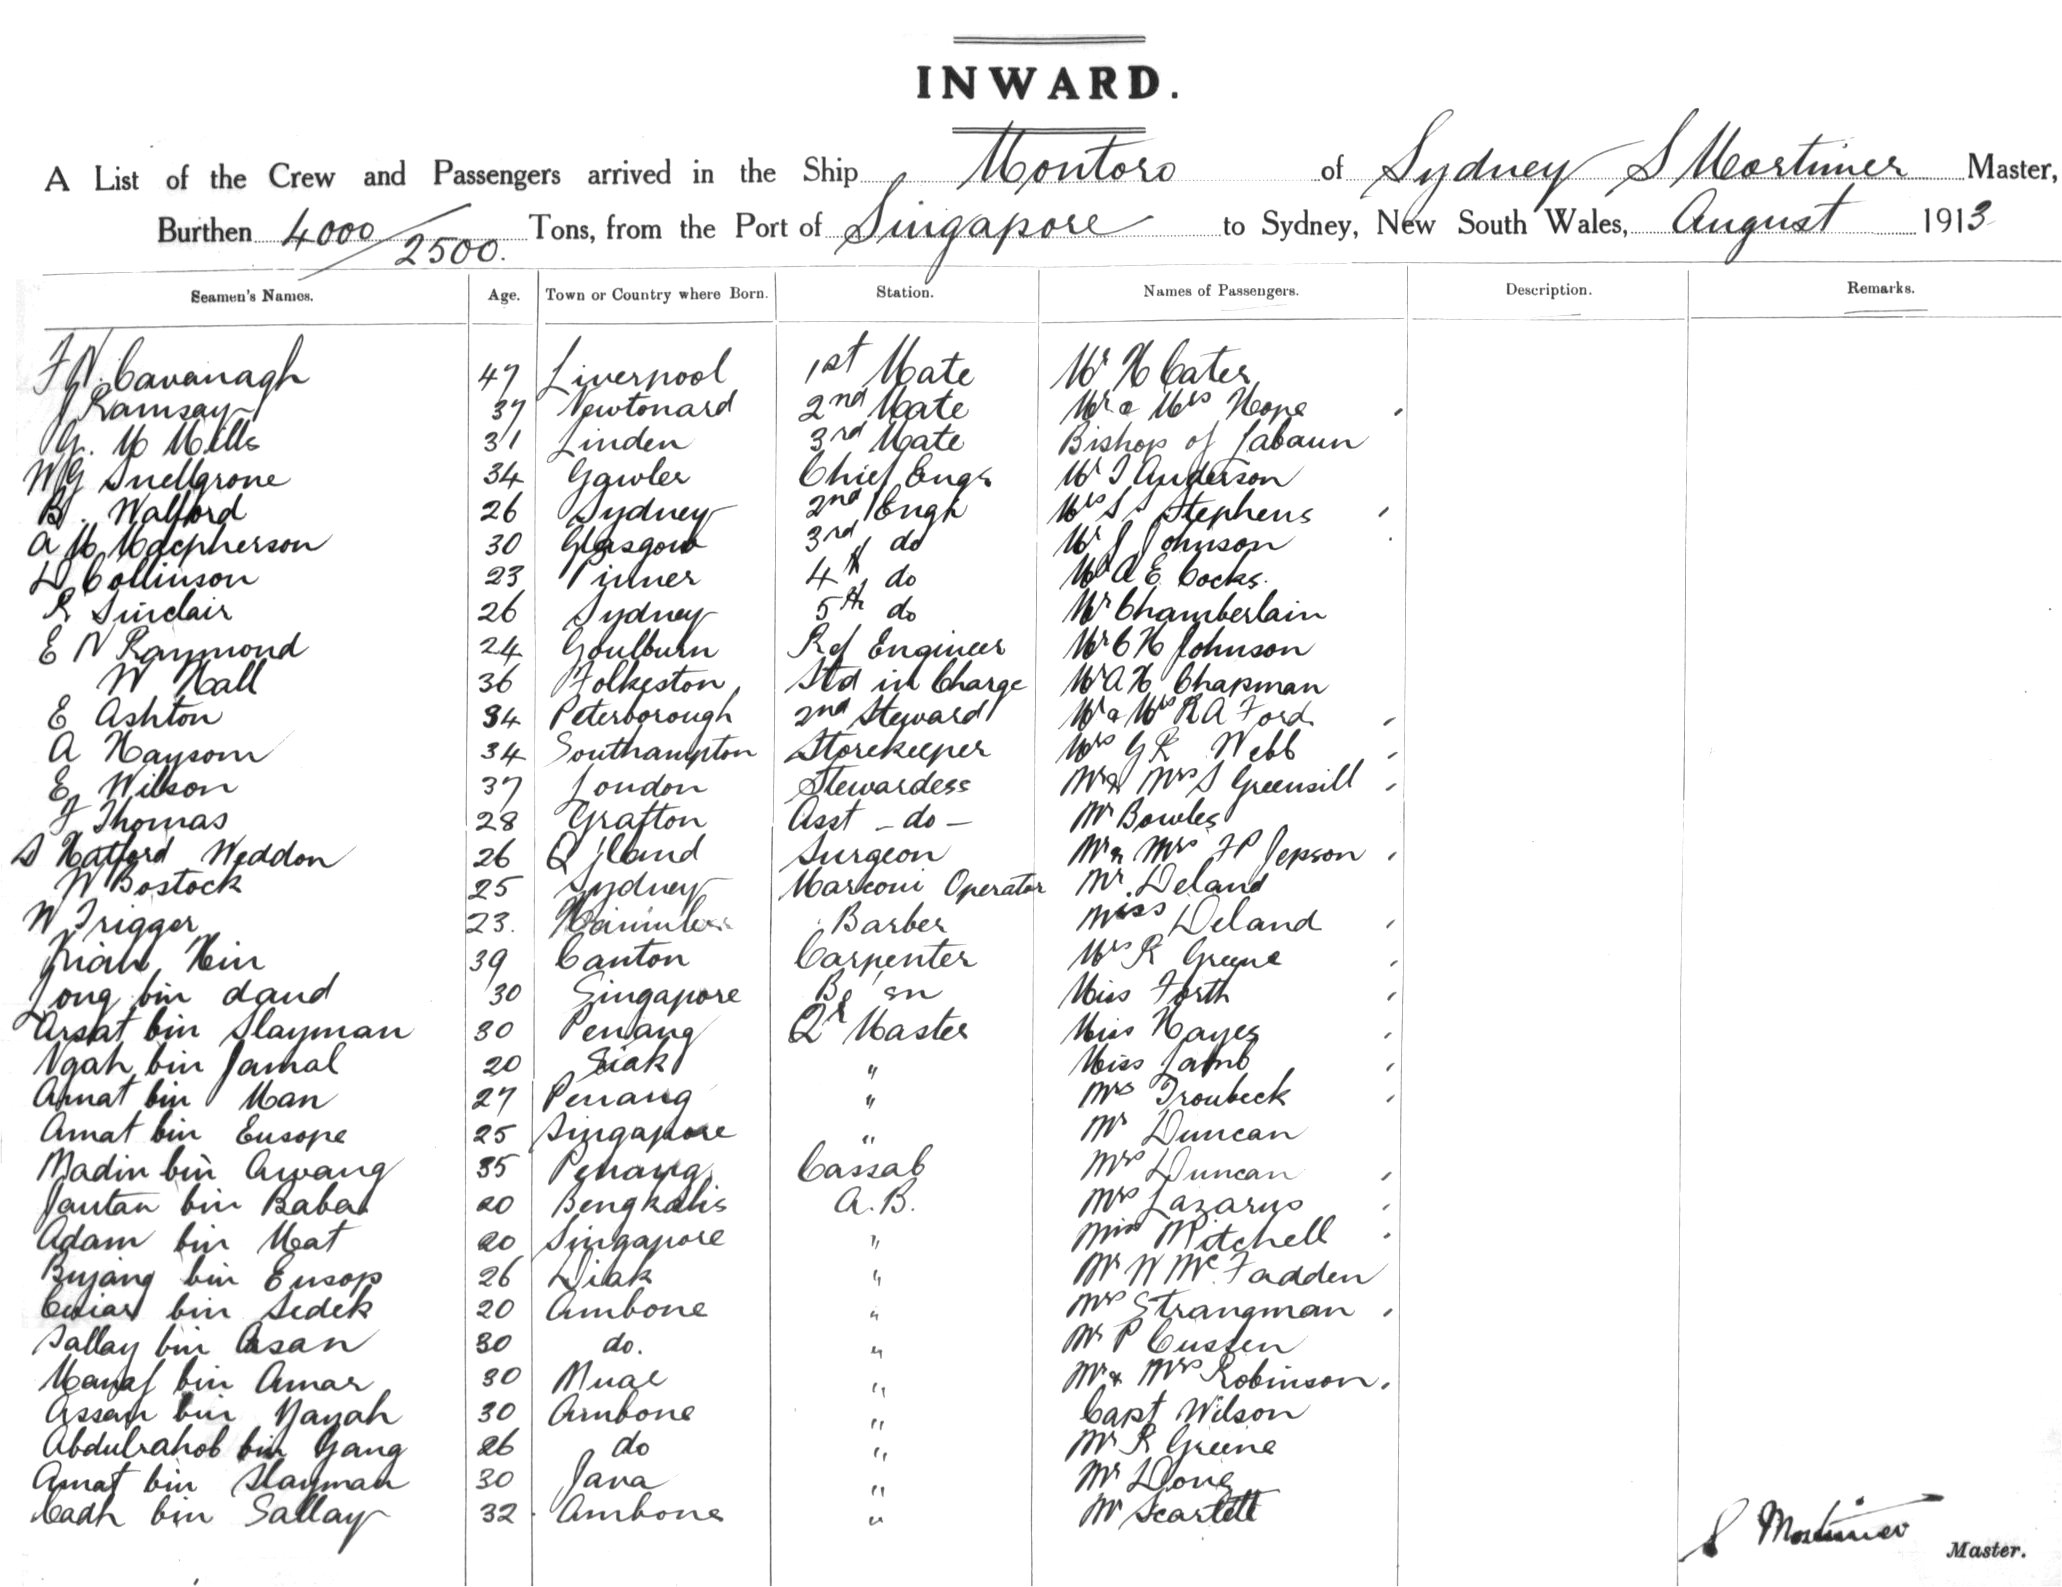 INWARD.
A List of the Crew and Passengers arrived in the Ship Montoro of Sydney S Mortimer Master,
Burthen 4000/2500. Tons, from the Port of Singapore to Sydney, New South Wales, August 1913
Seamen's Names. Age. Town or Country where Born. Station. Names of Passengers. Description. Remarks.
F N Cavanagh 47 Liverpool 1st Mate Mr H Cater
J Ramsay 37 Newtonard 2nd Mate Mr & Mrs Hope
G. M Mills 31 Linden 3rd Mate Bishop of Labaun
W G Snellgrone 34 Gawler Chief Engr Mr I Anderson
B. Walford 26 Sydney 2nd Engr Mrs S S Stephens
A M Macpherson 30 Glasgow 3rd do Mr J Johnson
D Collinson 23 Pinner 4th do Mr A E Cocks.
R Sinclair 26 Sydney 5th do Mr Chamberlain
E N Raymond 24 Goulburn Ref Engineer Mr C H Johnson
W Hall 36 Folkeston Std in Charge Mr A H Chapman
E Ashton 34 Peterborough 2nd Steward Mr & Mrs R A Ford
A Haysom 34 Southampton Storekeeper Mrs G R Webb
E Wilson 37 London Stewardess Mr & Mrs S Greensill
F Thomas 28 Grafton Asst - do - Mr Bowles
S Hatford Weddon 26 Q'land Surgeon Mr & Mrs F P Jepson
W Bostock 25 Sydney Marconi Operator Mr Deland
W Trigger 23. Barber Miss Deland
Hin 39 Canton Carpenter Mrs R Greene
Long bin daud 30 Singapore Bo'sn Miss Forth
Arsat bin Slayman 30 Penang Qr Master Miss Hayes
Ngah bin Jamal 20 Siak " Miss Lamb
Amat bin Man 27 Penang " Mrs Troubeck
Amat bin Eusope 25 Singapore " Mr Duncan
Madin bin Awang 35 Penang Cassab Mrs Duncan
Jantan bin Baba 20 Bengkalis A.B. Mrs Lazarus
Adam bin Mat 20 Singapore " Miss Mitchell
Bujang bin Eusop 26 Siak " Mr W McFadden
bin Sedek 20 Ambone " Mrs Strangman
Sallay bin Asan 30 do. " Mr P Cussen
Manaf bin Amar 30 Muar " Mr & Mrs Robinson
Assan bin Yayah 30 Ambone " Capt Wilson
Abdulrahob bin Yang 26 do " Mr R Greene
Amat bin Slayman 30 Java " Mr Dove
bin Sallay 32 Ambone " Mr Scarlett
S Mortimer
Master.